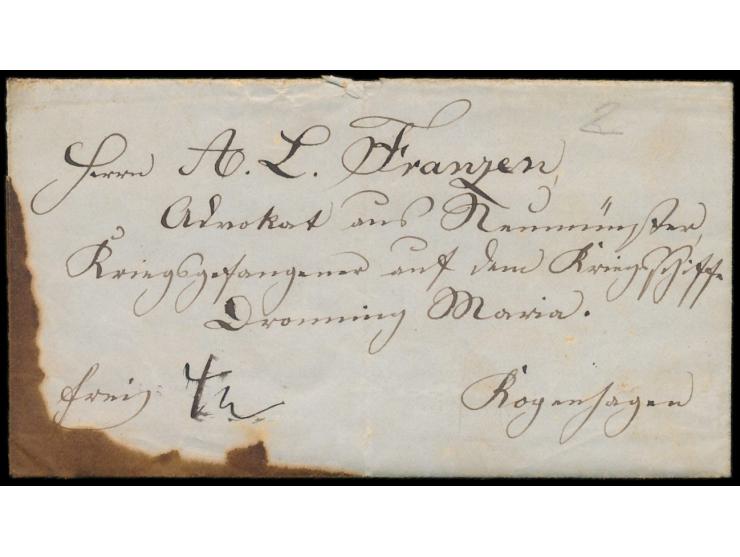 2
Herrn A. L. Franzen,
Advokat aus Neumünster,
Kriegsgefangener auf dem Kriegsschiffe
Dronning Maria.
frei
Kopenhagen